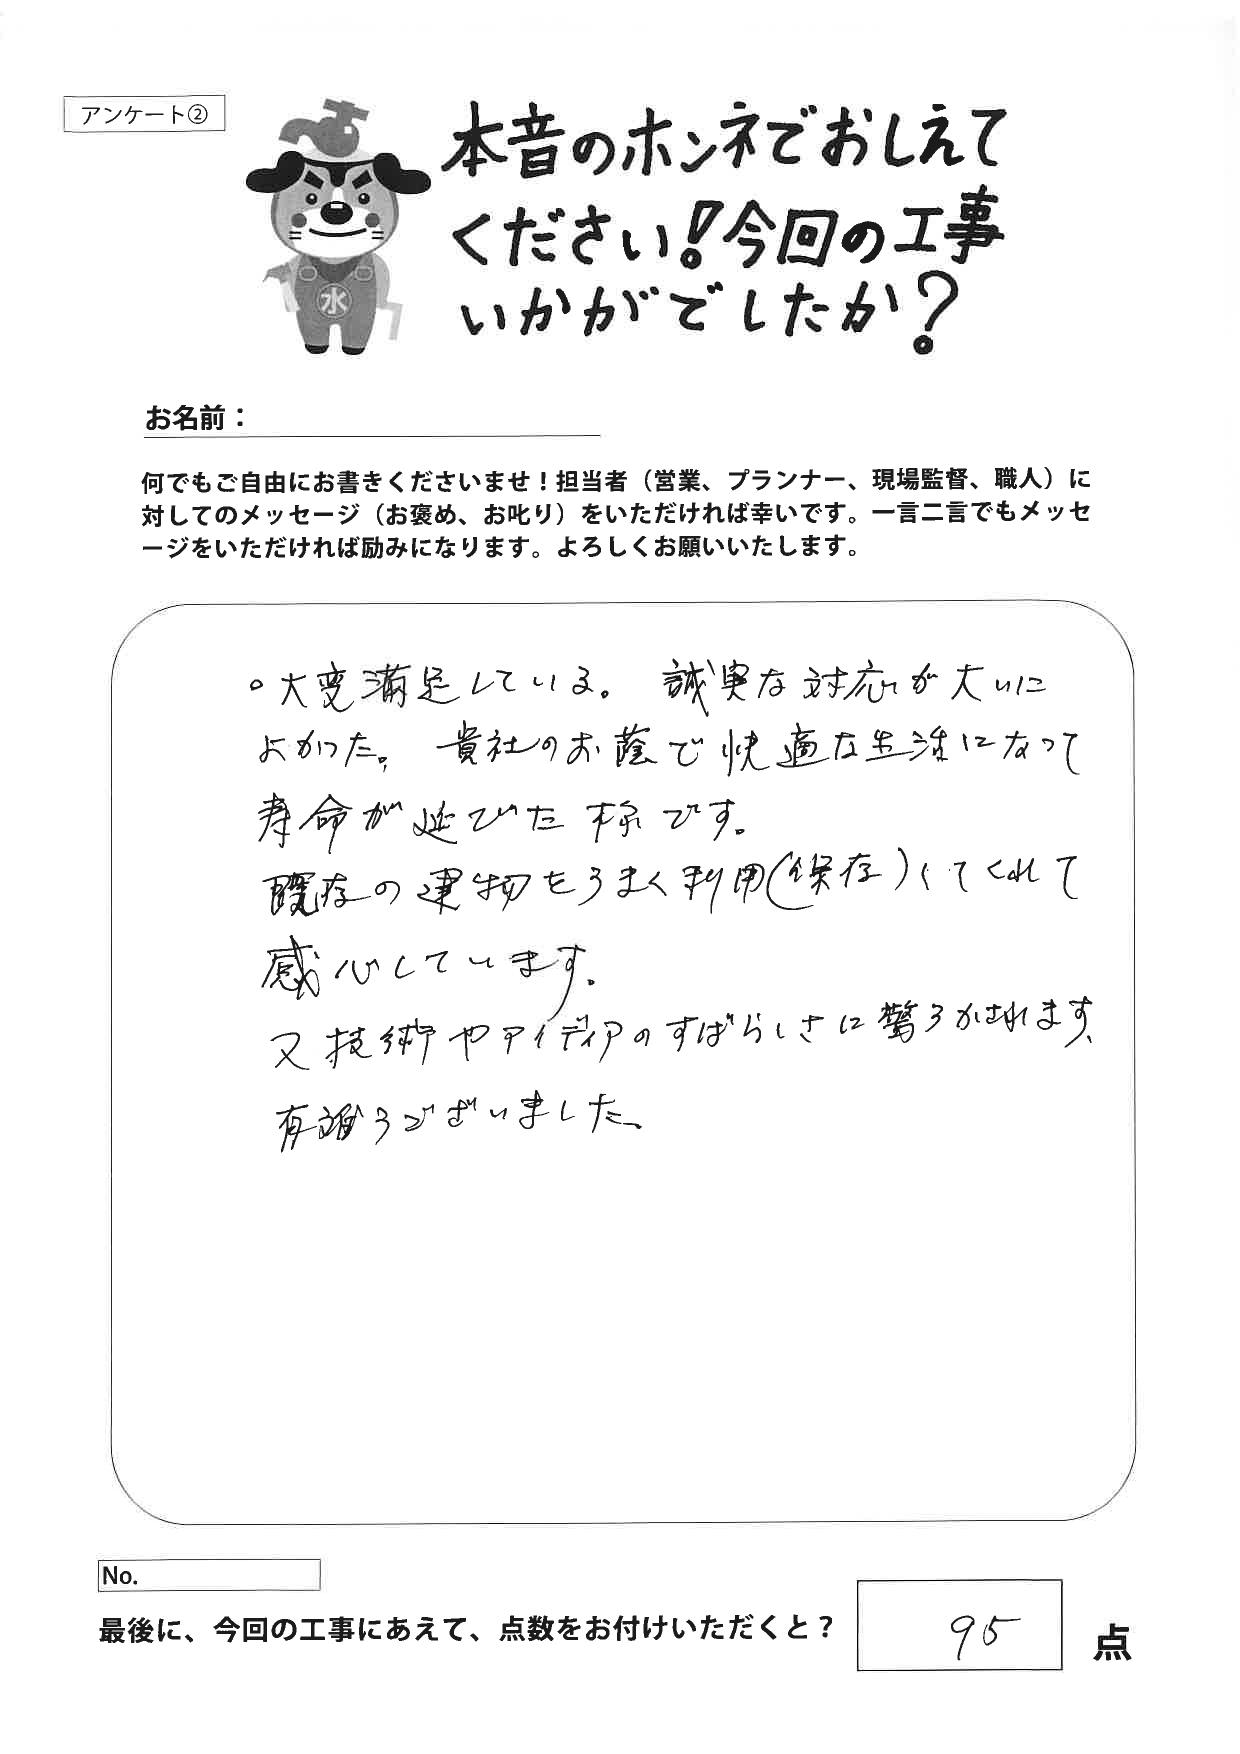 アンケート②
本音のホンネでおしえて
ください!今回の工事
いかがでしたか?
水
お名前：
何でもご自由にお書きくださいませ！担当者（営業、プランナー、現場監督、職人）に
対してのメッセージ（お褒め、お叱り）をいただければ幸いです。一言二言でもメッセ
ージをいただければ励みになります。よろしくお願いいたします。
○大変満足している。 誠実な対応が大いに
よかった。 貴社のお蔭で快適な生活になって
寿命が延びた様です。
既存の建物をうまく利用(保存)してくれて
感心しています。
又技術やアイディアのすばらしさに驚ろかされます、
有難うございました。
No.
最後に、今回の工事にあえて、点数をお付けいただくと？
95
点